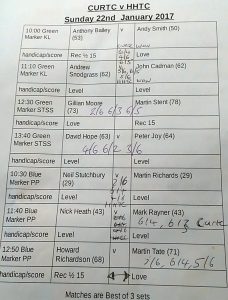 CURTC v HHTC
Sunday 22nd January 2017
10:00 Green Marker KL Anthony Bailey (53) v Andy Smith (50)
handicap/score Rec ½ 15 Love
11:10 Green Marker KL Andrew Snodgrass (62) John Cadman (62)
handicap/score Level Level
12:30 Green Marker STSS Gillian Moore (73) 2/6 6/3 6/5 Martin Stent (78)
handicap/score Love Rec 15
13:40 Green Marker STSS David Hope (63) 4/6 6/2 3/6 Peter Joy (64)
handicap/score Level Level
10:30 Blue Marker PP Neil Stutchbury (29) v Martin Richards (29)
handicap/score Level Level
11:40 Blue Marker PP Nick Heath (43) v Mark Rayner (43)
handicap/score Level Level
12:50 Blue Marker PP Howard Richardson (68) v Martin Tate (71)
handicap/score Rec ½ 15 Love
Matches are Best of 3 sets